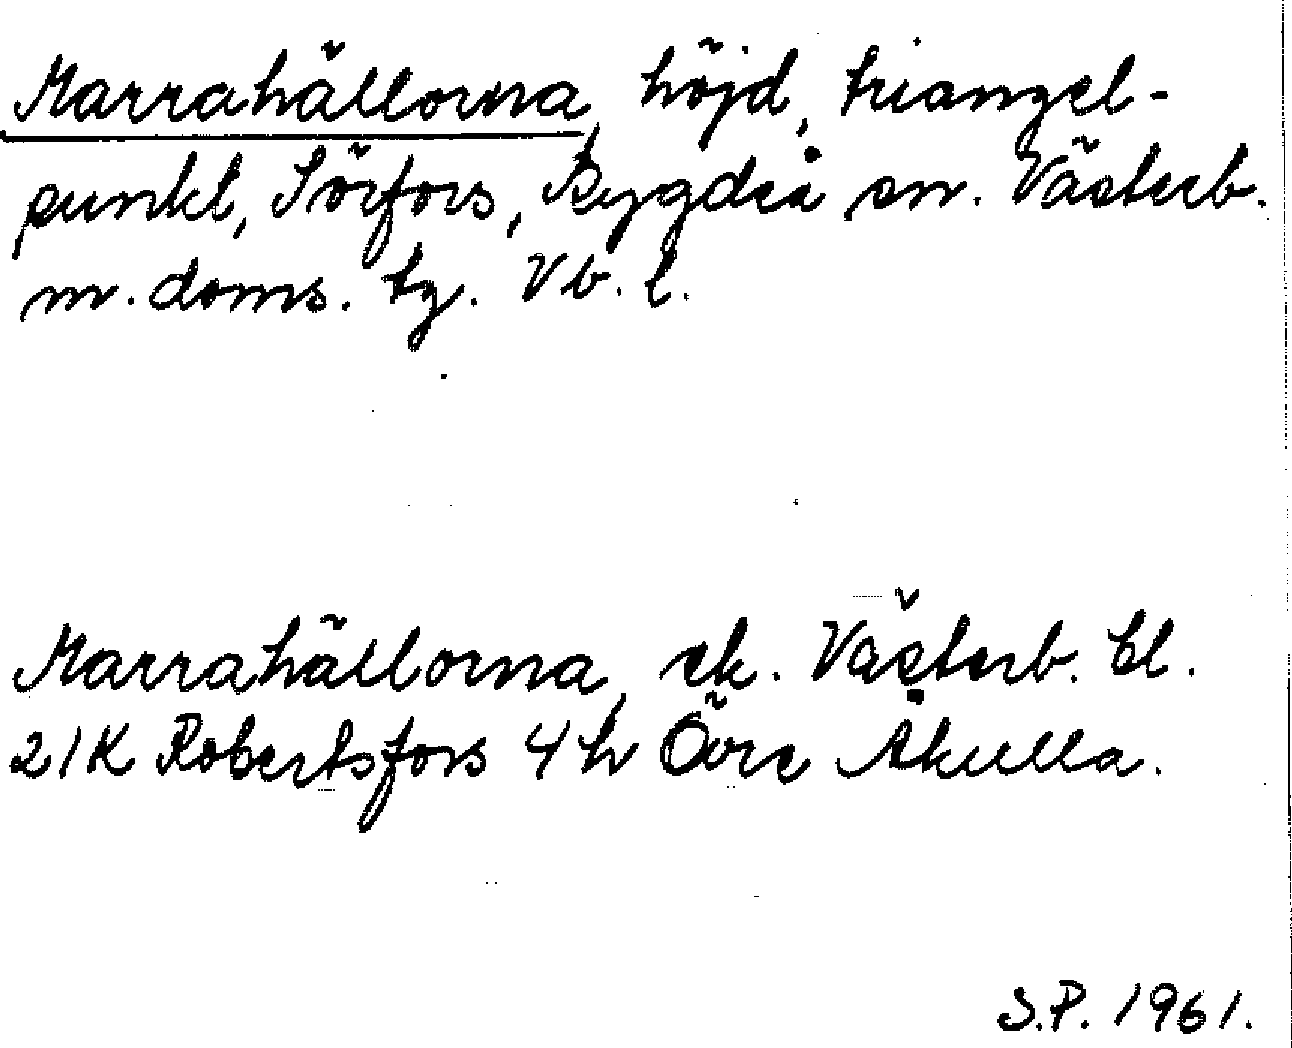 Marrahällorna, höjd, triangel-
punkt, Sörfors, Bygdeå sn. Västerb.
m. doms. tg. Vb. l.
Marrahällorna, ek. Västerb. bl.
21K Robertsfors 4h Övre Åkulla.
S.P. 1961.